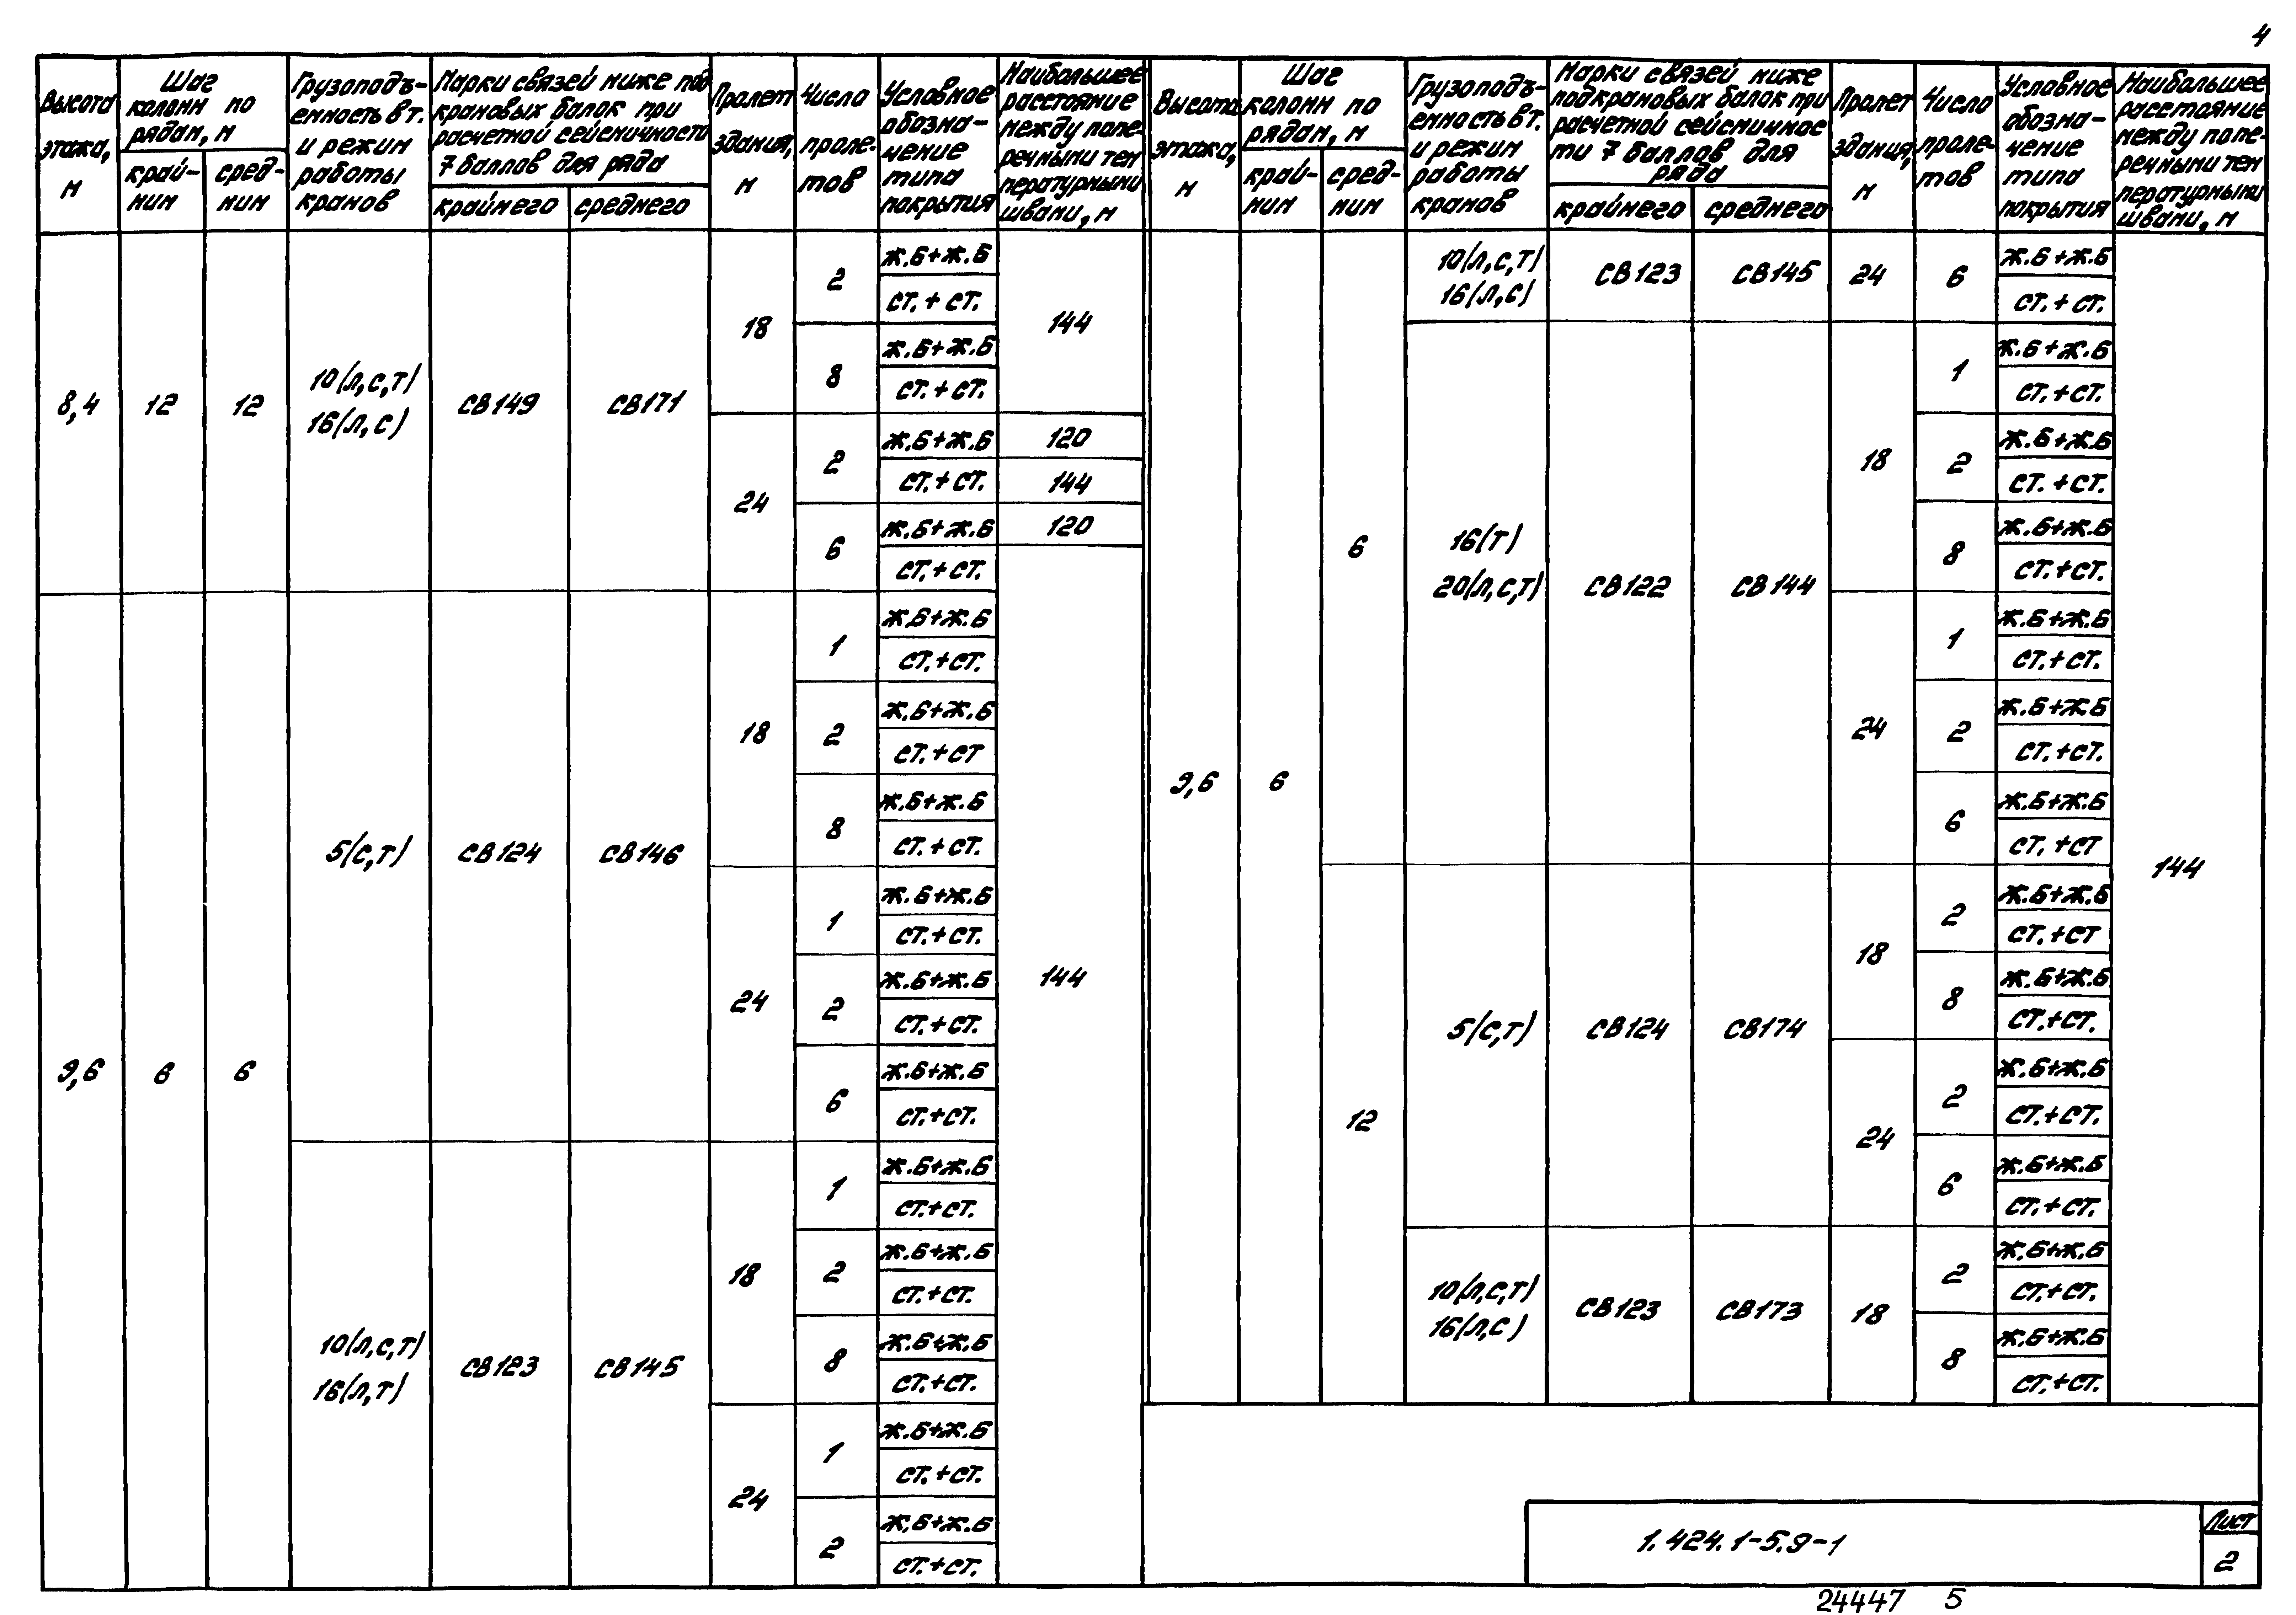 4
Высота
этажа,
м
Шаг
колонн по
рядам, м
край-
ним
сред-
ним
Грузоподъ-
емность в т.
и режим
работы
кранов
Марки связей ниже под
крановых балок при
расчетной сейсмичности
7 баллов для ряда
крайнего
среднего
Пролет
здания,
м
Число
проле-
тов
Условное
обозна-
чение
типа
покрытия
Наибольшее
расстояние
между попе-
речными тем
пературными
швами, м
8,4
12
12
10(л,с,т)
16(л,с)
СВ149
СВ171
18
2
Ж.Б+Ж.Б
СТ.+СТ.
144
8
Ж.Б+Ж.Б
СТ.+СТ.
24
2
Ж.Б+Ж.Б
120
СТ.+СТ.
144
6
Ж.Б+Ж.Б
120
СТ.+СТ.
144
9,6
6
6
5(с,т)
СВ124
СВ146
18
1
Ж.Б+Ж.Б
СТ.+СТ.
2
Ж.Б+Ж.Б
СТ.+СТ
8
Ж.Б+Ж.Б
СТ.+СТ.
24
1
Ж.Б+Ж.Б
СТ.+СТ.
2
Ж.Б+Ж.Б
СТ.+СТ.
6
Ж.Б+Ж.Б
СТ.+СТ.
10(л,с,т)
16(л,т)
СВ123
СВ145
18
1
Ж.Б+Ж.Б
СТ.+СТ.
2
Ж.Б+Ж.Б
СТ.+СТ.
8
Ж.Б+Ж.Б
СТ.+СТ.
24
1
Ж.Б+Ж.Б
СТ.+СТ.
2
Ж.Б+Ж.Б
СТ.+СТ.
Высота
этажа,
м
Шаг
колонн по
рядам, м
край-
ним
сред-
ним
Грузоподъ-
емность в т.
и режим
работы
кранов
Марки связей ниже
подкрановых балок при
расчетной сейсмичнос
ти 7 баллов для
ряда
крайнего
среднего
Пролет
здания,
м
Число
проле-
тов
Условное
обозна-
чение
типа
покрытия
Наибольшее
расстояние
между попе-
речными тем
пературными
швами, м
9,6
6
6
10(л,с,т)
16(л,с)
СВ123
СВ145
24
6
Ж.Б+Ж.Б
СТ.+СТ.
144
16(т)
20(л,с,т)
СВ122
СВ144
18
1
Ж.Б+Ж.Б
СТ.+СТ.
2
Ж.Б+Ж.Б
СТ.+СТ.
8
Ж.Б+Ж.Б
СТ.+СТ.
24
1
Ж.Б+Ж.Б
СТ.+СТ.
2
Ж.Б+Ж.Б
СТ.+СТ.
6
Ж.Б+Ж.Б
СТ.+СТ
12
5(с,т)
СВ124
СВ174
18
2
Ж.Б+Ж.Б
СТ.+СТ
8
Ж.Б+Ж.Б
СТ.+СТ.
24
2
Ж.Б+Ж.Б
СТ.+СТ.
6
Ж.Б+Ж.Б
СТ.+СТ.
10(л,с,т)
16(л,с)
СВ123
СВ173
18
2
Ж.Б+Ж.Б
СТ.+СТ.
8
Ж.Б+Ж.Б
СТ.+СТ.
1.424.1-5.9-1
Лист
2
24447 5